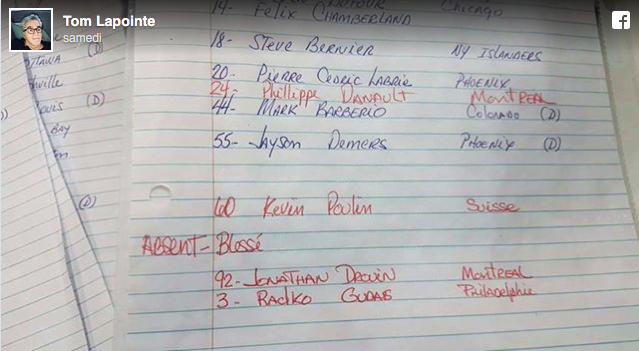 Tom Lapointe
samedi
14- Felix Chamberland Chicago
18- Steve Bernier NY Islanders
20- Pierre Cedric Labrie Phoenix
24- Phillippe Danault Montreal
44- Mark Barberio Colorado (D)
55- Jayson Demers Phoenix (D)
60 Kevin Poulin Suisse
Absent- Blessé
92- Jonathan Drouin Montreal
3- Radko Gudas Philadelphie
(D)
ville
ouis (D)
Bay
(D)